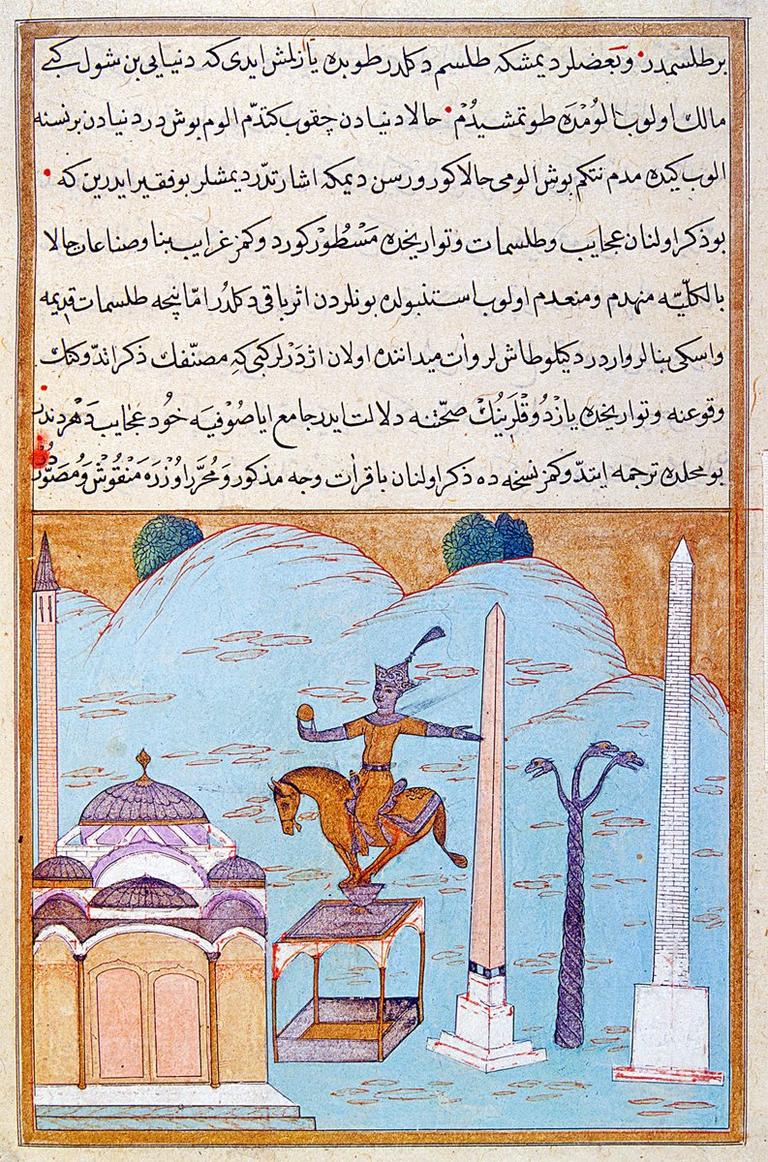 بر طلسمدر وبعضلر ديمشكه طلسم دكلدر طوبده يازلمش ايدى كه دنيايى بن شول كبے
مالك اولوب الومده طوتمشيدم حالا دنيادن چقوب كتدم الوم بوش در دنيادن بر نسنه
الوب كيده مدم نتكم بوش الومى حالا كورورسن ديمكه اشارتدر ديمشلر بو فقير ايدرين كه
بو ذكر اولنان عجايب وطلسمات وتواريخده مسطور كورد وكمز غرايب بنا وصناعات حالا
بالكليّه منهدم ومنعدم اولوب استنبولده بونلردن اثر باقى دكلدر امّا نيچه طلسمات قديمه
واسكى بنالر واردر ديكيلو طاشلر وات ميداننده اولان اژدرلر كبى كه مصنّفك ذكر اتدوكنك
وقوعنه وتواريخده يازدوقلرينك صحّتنه دلالت ايدر جامع اياصوفيه خود عجايب دهردندر
بو محلده ترجمه ايتدوكمز نسخه ده ذكر اولنان باقرات وجه مذكور ومحرر اوزره منقوش ومصوّر